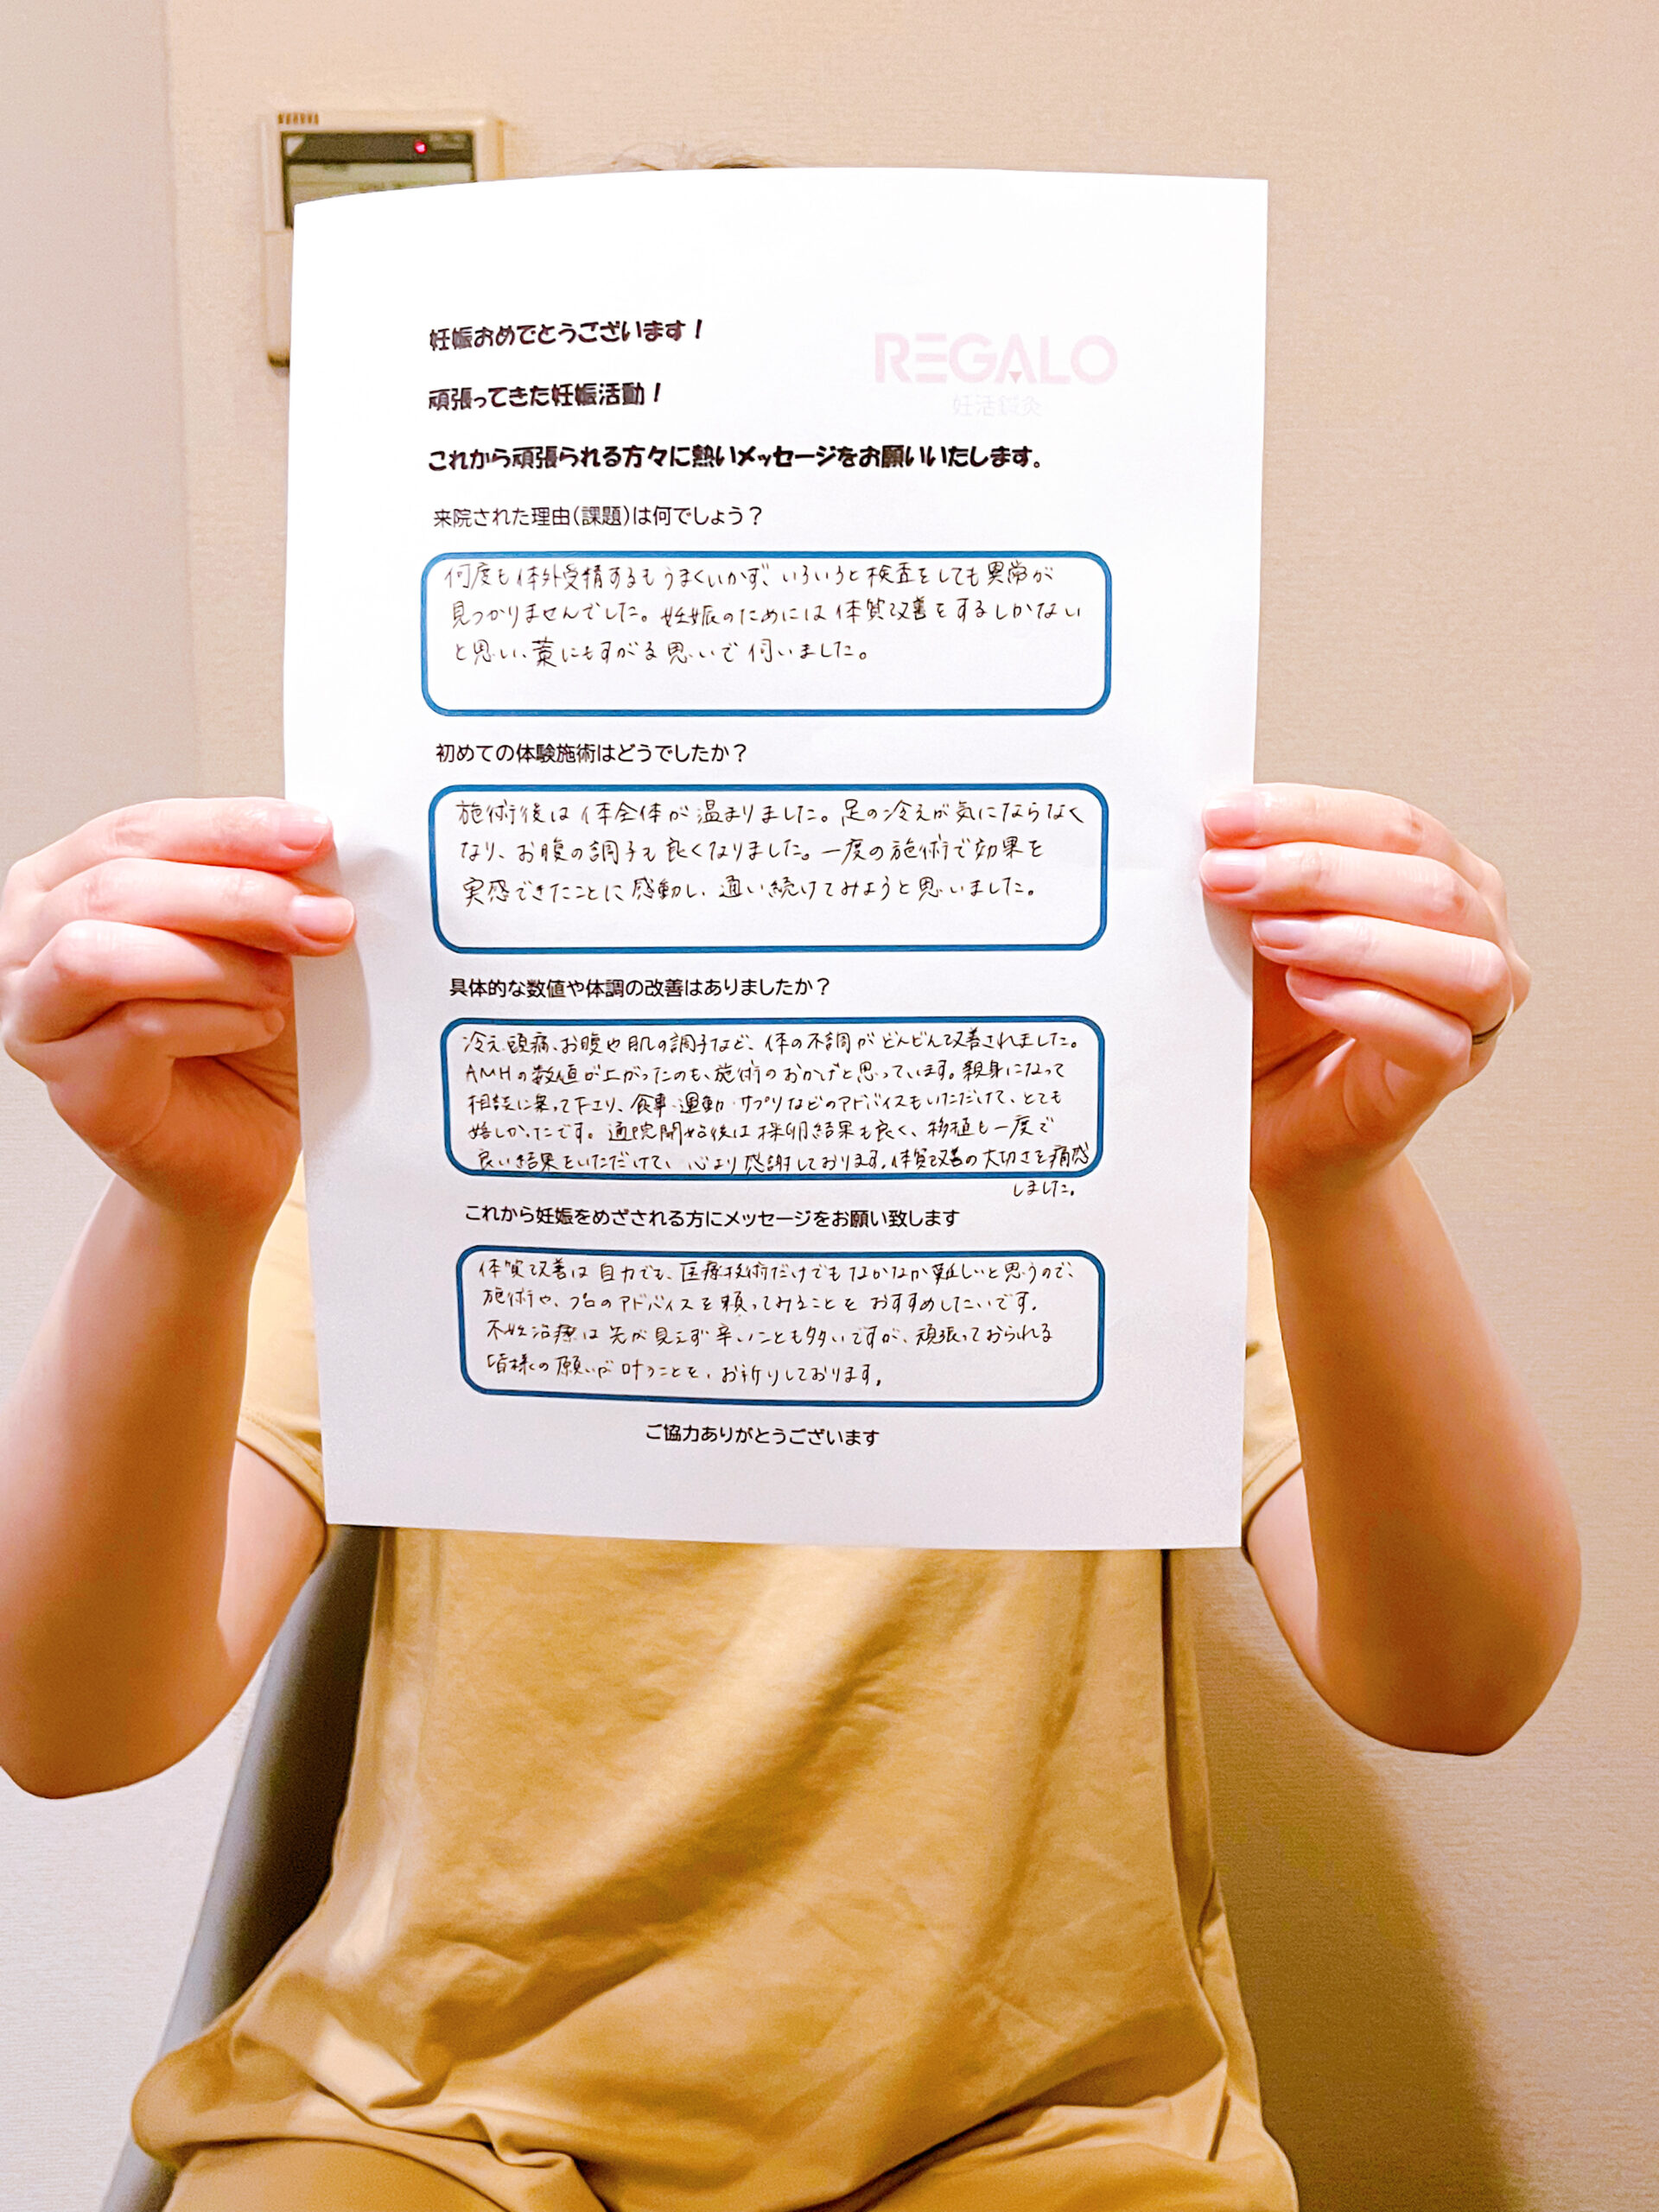 妊娠おめでとうございます！
REGALO
妊活鍼灸
頑張ってきた妊娠活動！
これから頑張られる方々に熱いメッセージをお願いいたします。
来院された理由(課題)は何でしょう？
何度も体外受精するもうまくいかず、いろいろと検査をしても異常が
見つかりませんでした。妊娠のためには体質改善をするしかない
と思い、藁にもすがる思いで伺いました。
初めての体験施術はどうでしたか？
施術後は体全体が温まりました。足の冷えが気にならなく
なり、お腹の調子も良くなりました。一度の施術で効果を
実感できたことに感動し、通い続けてみようと思いました。
具体的な数値や体調の改善はありましたか？
冷え、頭痛、お腹や肌の調子など、体の不調がどんどん改善されました。
AMHの数値が上がったのも、施術のおかげと思っています。親身になって
相談に乗って下さり、食事・運動・サプリなどのアドバイスもいただけて、とても
嬉しかったです。通院開始後は採卵結果も良く、移植も一度で
良い結果をいただけて、心より感謝しております。体質改善の大切さを痛感
しました。
これから妊娠をめざされる方にメッセージをお願い致します
体質改善は自力でも、医療技術だけでもなかなか難しいと思うので、
施術や、プロのアドバイスを頼ってみることをおすすめしたいです。
不妊治療は先が見えず辛いことも多いですが、頑張っておられる
皆様の願いが叶うことを、お祈りしております。
ご協力ありがとうございます